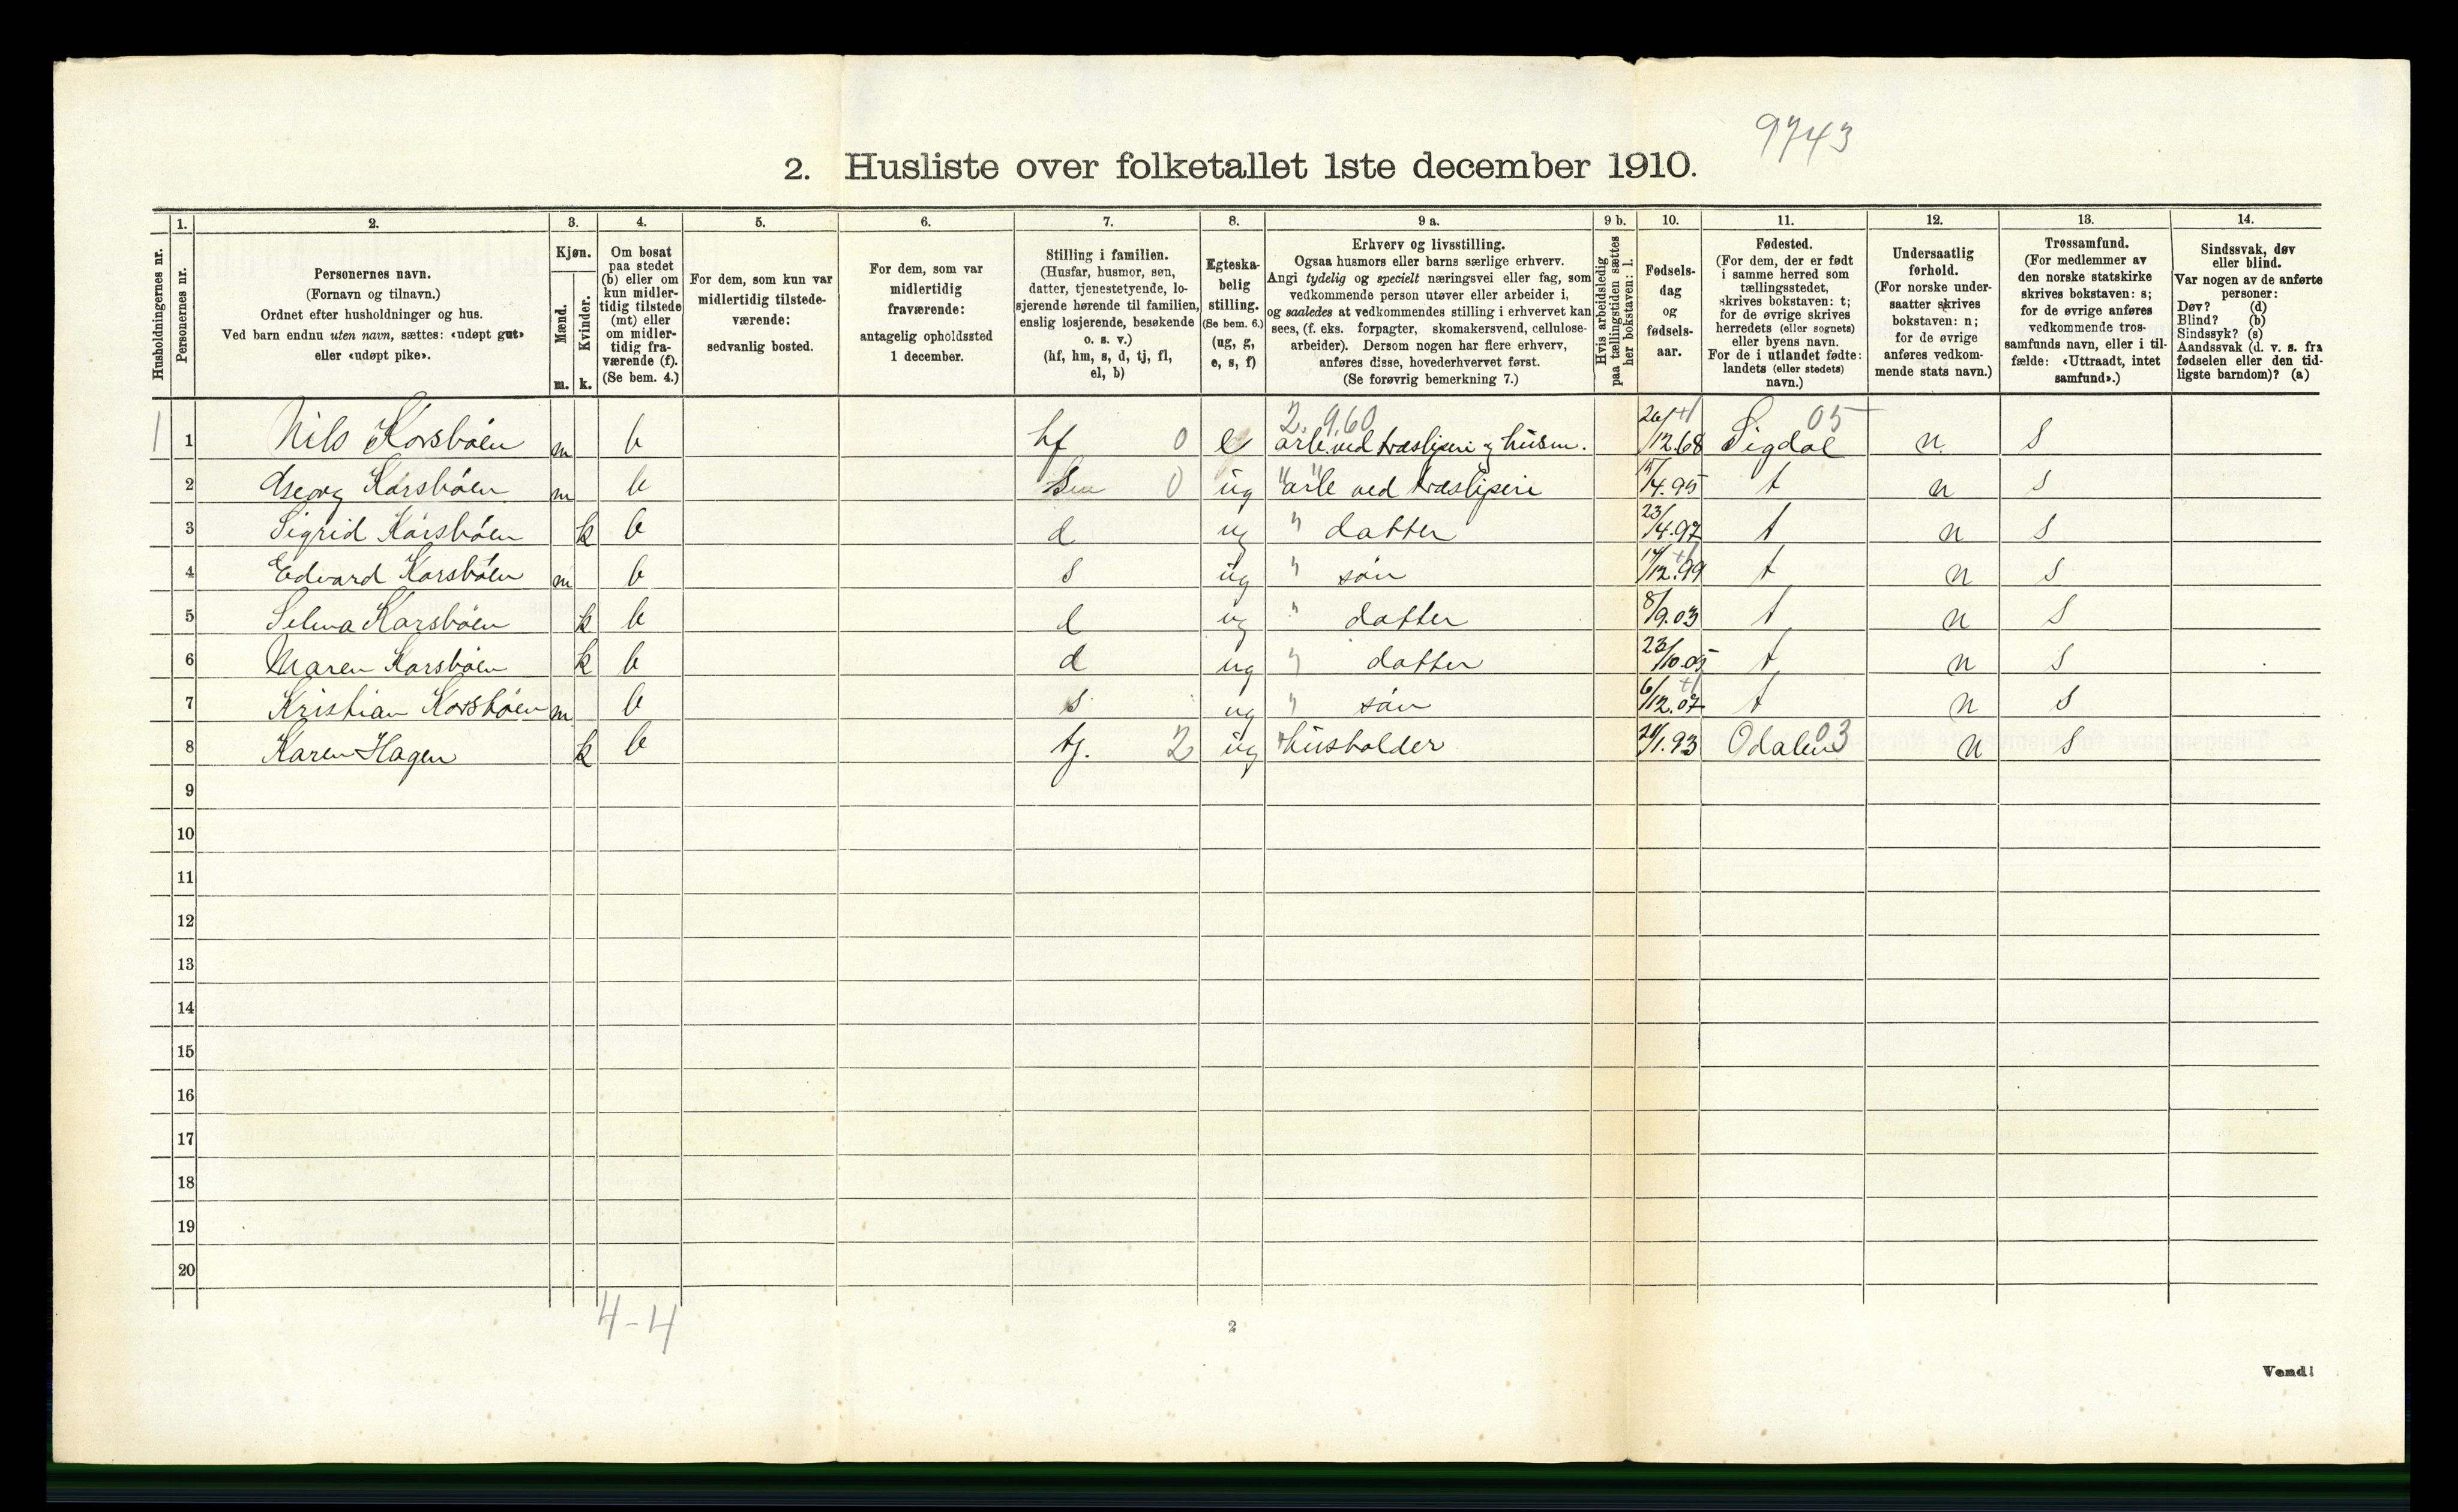 9743
2. Husliste over folketallet 1ste december 1910.
Husholdningernes nr.
1. Personernes nr.
2. Personernes navn.
(Fornavn og tilnavn.)
Ordnet efter husholdninger og hus.
Ved barn endnu uten navn, sættes: «udøpt gut»
eller «udøpt pike».
3. Kjøn.
Mænd. m.
Kvinder. k.
4. Om bosat
paa stedet
(b) eller om
kun midler-
tidig tilstede
(mt) eller
om midler-
tidig fra-
værende (f).
(Se bem. 4.)
5. For dem, som kun var
midlertidig tilstede-
værende:
sedvanlig bosted.
6. For dem, som var
midlertidig
fraværende:
antagelig opholdssted
1 december.
7. Stilling i familien.
(Husfar, husmor, søn,
datter, tjenestetyende, lo-
sjerende hørende til familien,
enslig losjerende, besøkende
o. s. v.)
(hf, hm, s, d, tj, fl,
el, b)
8. Egteska-
belig
stilling.
(Se bem. 6.)
(ug, g,
e, s, f)
9 a. Erhverv og livsstilling.
Ogsaa husmors eller barns særlige erhverv.
Angi tydelig og specielt næringsvei eller fag, som
vedkommende person utøver eller arbeider i,
og saaledes at vedkommendes stilling i erhvervet kan
sees, (f. eks. forpagter, skomakersvend, cellulose-
arbeider). Dersom nogen har flere erhverv,
anføres disse, hovederhvervet først.
(Se forøvrig bemerkning 7.)
9 b. Hvis arbeidsledig
paa tællingstiden sættes
her bokstaven: l.
10. Fødsels-
dag
og
fødsels-
aar.
11. Fødested.
(For dem, der er født
i samme herred som
tællingsstedet,
skrives bokstaven: t;
for de øvrige skrives
herredets (eller sognets)
eller byens navn.
For de i utlandet fødte:
landets (eller stedets)
navn.)
12. Undersaatlig
forhold.
(For norske under-
saatter skrives
bokstaven: n;
for de øvrige
anføres vedkom-
mende stats navn.)
13. Trossamfund.
(For medlemmer av
den norske statskirke
skrives bokstaven: s;
for de øvrige anføres
vedkommende tros-
samfunds navn, eller i til-
fælde: «Uttraadt, intet
samfund».)
14. Sindssvak, døv
eller blind.
Var nogen av de anførte
personer:
Døv? (d)
Blind? (b)
Sindssyk? (s)
Aandssvak (d. v. s. fra
fødselen eller den tid-
ligste barndom)? (a)
2. 960 05
1 1 Nils Korsbøen m b hf 0 e arb. ved træsliperi og husm. 26/12.68 Sigdal n s
2 Georg Korsbøen m b s 0 ug " arb ved træsliperi 15/4.95 t n s
3 Sigrid Korsbøen k b d ug " datter 23/4.97 t n s
4 Edvard Korsbøen m b s ug " søn 14/12.99 t n s
5 Selma Korsbøen k b d ug " datter 8/9.03 t n s
6 Maren Korsbøen k b d ug " datter 23/10.05 t n s
7 Kristian Korsbøen m b s ug " søn 6/12.07 t n s
8 Karen Hagen k b tj. 2 ug husholder /1.93 Odalen 03 n s
9
10
11
12
13
14
15
16
17
18
19
20
4-4
2
Vend!